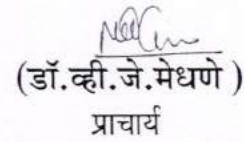 (डॉ.व्ही.जे.मेधणे )
प्राचार्य